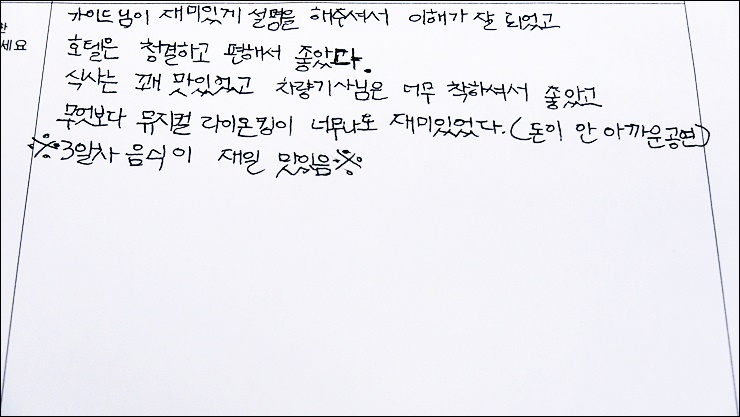 가이드님이 재미있게 설명을 해주셔서 이해가 잘 되었고
호텔은 청결하고 편해서 좋았다.
식사는 꽤 맛있었고 차량기사님은 너무 착하셔서 좋았고
무엇보다 뮤지컬 라이온킹이 너무나도 재미있었다. (돈이 안 아까운공연)
※3일차 음식이 재일 맛있음※
세요